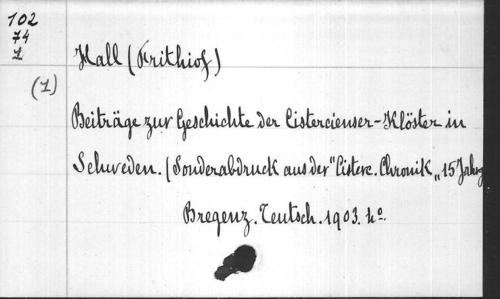 102
74
1
Hall (Frithiof)
(1)
Beiträge zur Geschichte der Cistercienser-Klöster in
Schweden. (Sonderabdruck aus der "Citerc. Chronik„ 15 Jahrg
Bregenz. Teutsch. 1903. 4o.